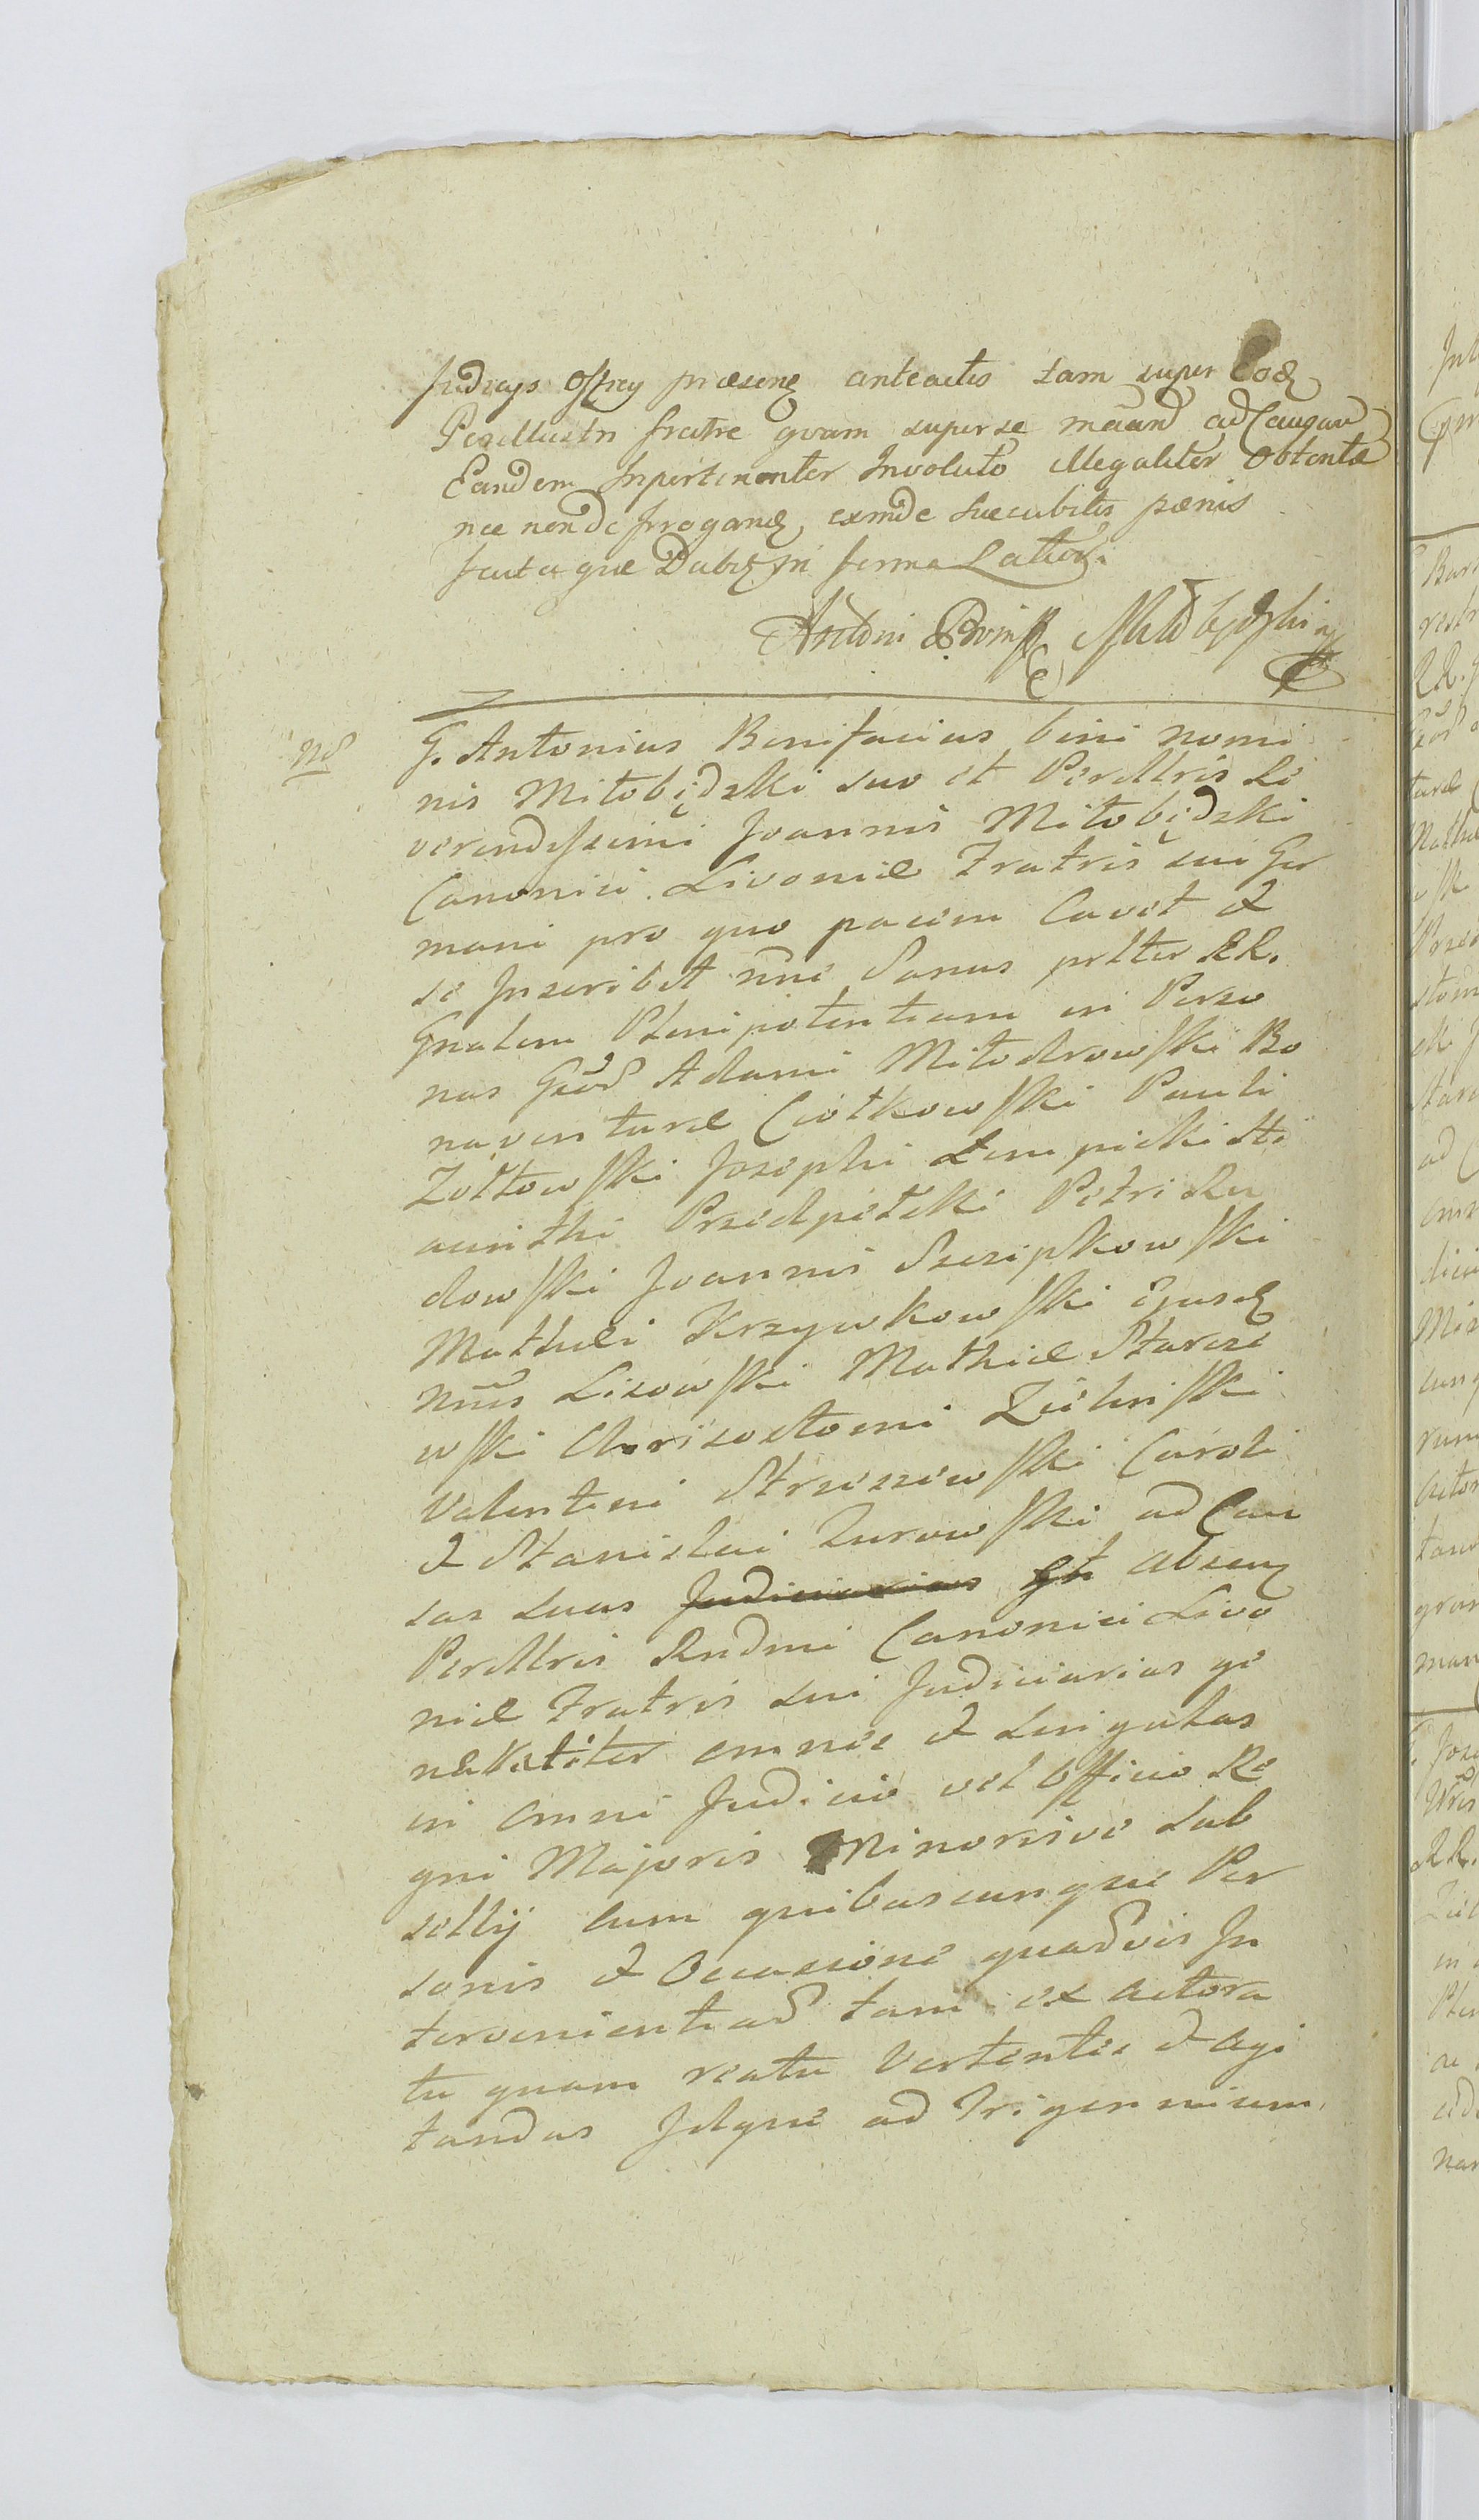 Judicys Offcy præsenz anteactis tam super Eodz
Perillustri fratre qvam super se ad Causam
Eandem Inpertinenter Involuto illegaliter Obtentæ
nec non de irroganz, exinde succubitis pænis
factaque Dabz in forma Latiori.
Antoni Miłobędzki
Nd
G. Antonius Bonifacius bini nomi
nis Miłobędzki suo et Perillris Re
verendissimi Joannis Miłobędzki
Canonici Livoniæ Fratris sui Ger
mani pro quo pacem Cavet &
se Inscribet nunc Sanus prstter RR.
Gnalem Plenipotentiam in Perso
nas Gsor Adami Miłodrowski Bo
naventuræ Ciotkowski Pauli
Zołtowski Josephi Łempicki Hi
acinthi Przedpełski Petri Ru
dowski Joannis Szczipkowski
Mathæi Krzywkowski Ejusdz
Nnis Lisowski Mathiæ Starcze
wski Chrisostomi Zielinski
Valentini Strzeszewski Caroli
& Stanislai Zurawski ad Cau
sas suas Judiciarias et absenz
Perillris Rndmi Canonici Livo
niæ Fratris sui Judiciarias ge
neraliter omnes & singulas
in omni Judicio vel Officio Re
gni Majoris Minorisve Sub
sellij cum quibuscunque Per
sonis & Occasione quadvis In
tervenientiad tam ex actora
tu quam reatu Vertentes & agi
tandas Idque ad Trigennium